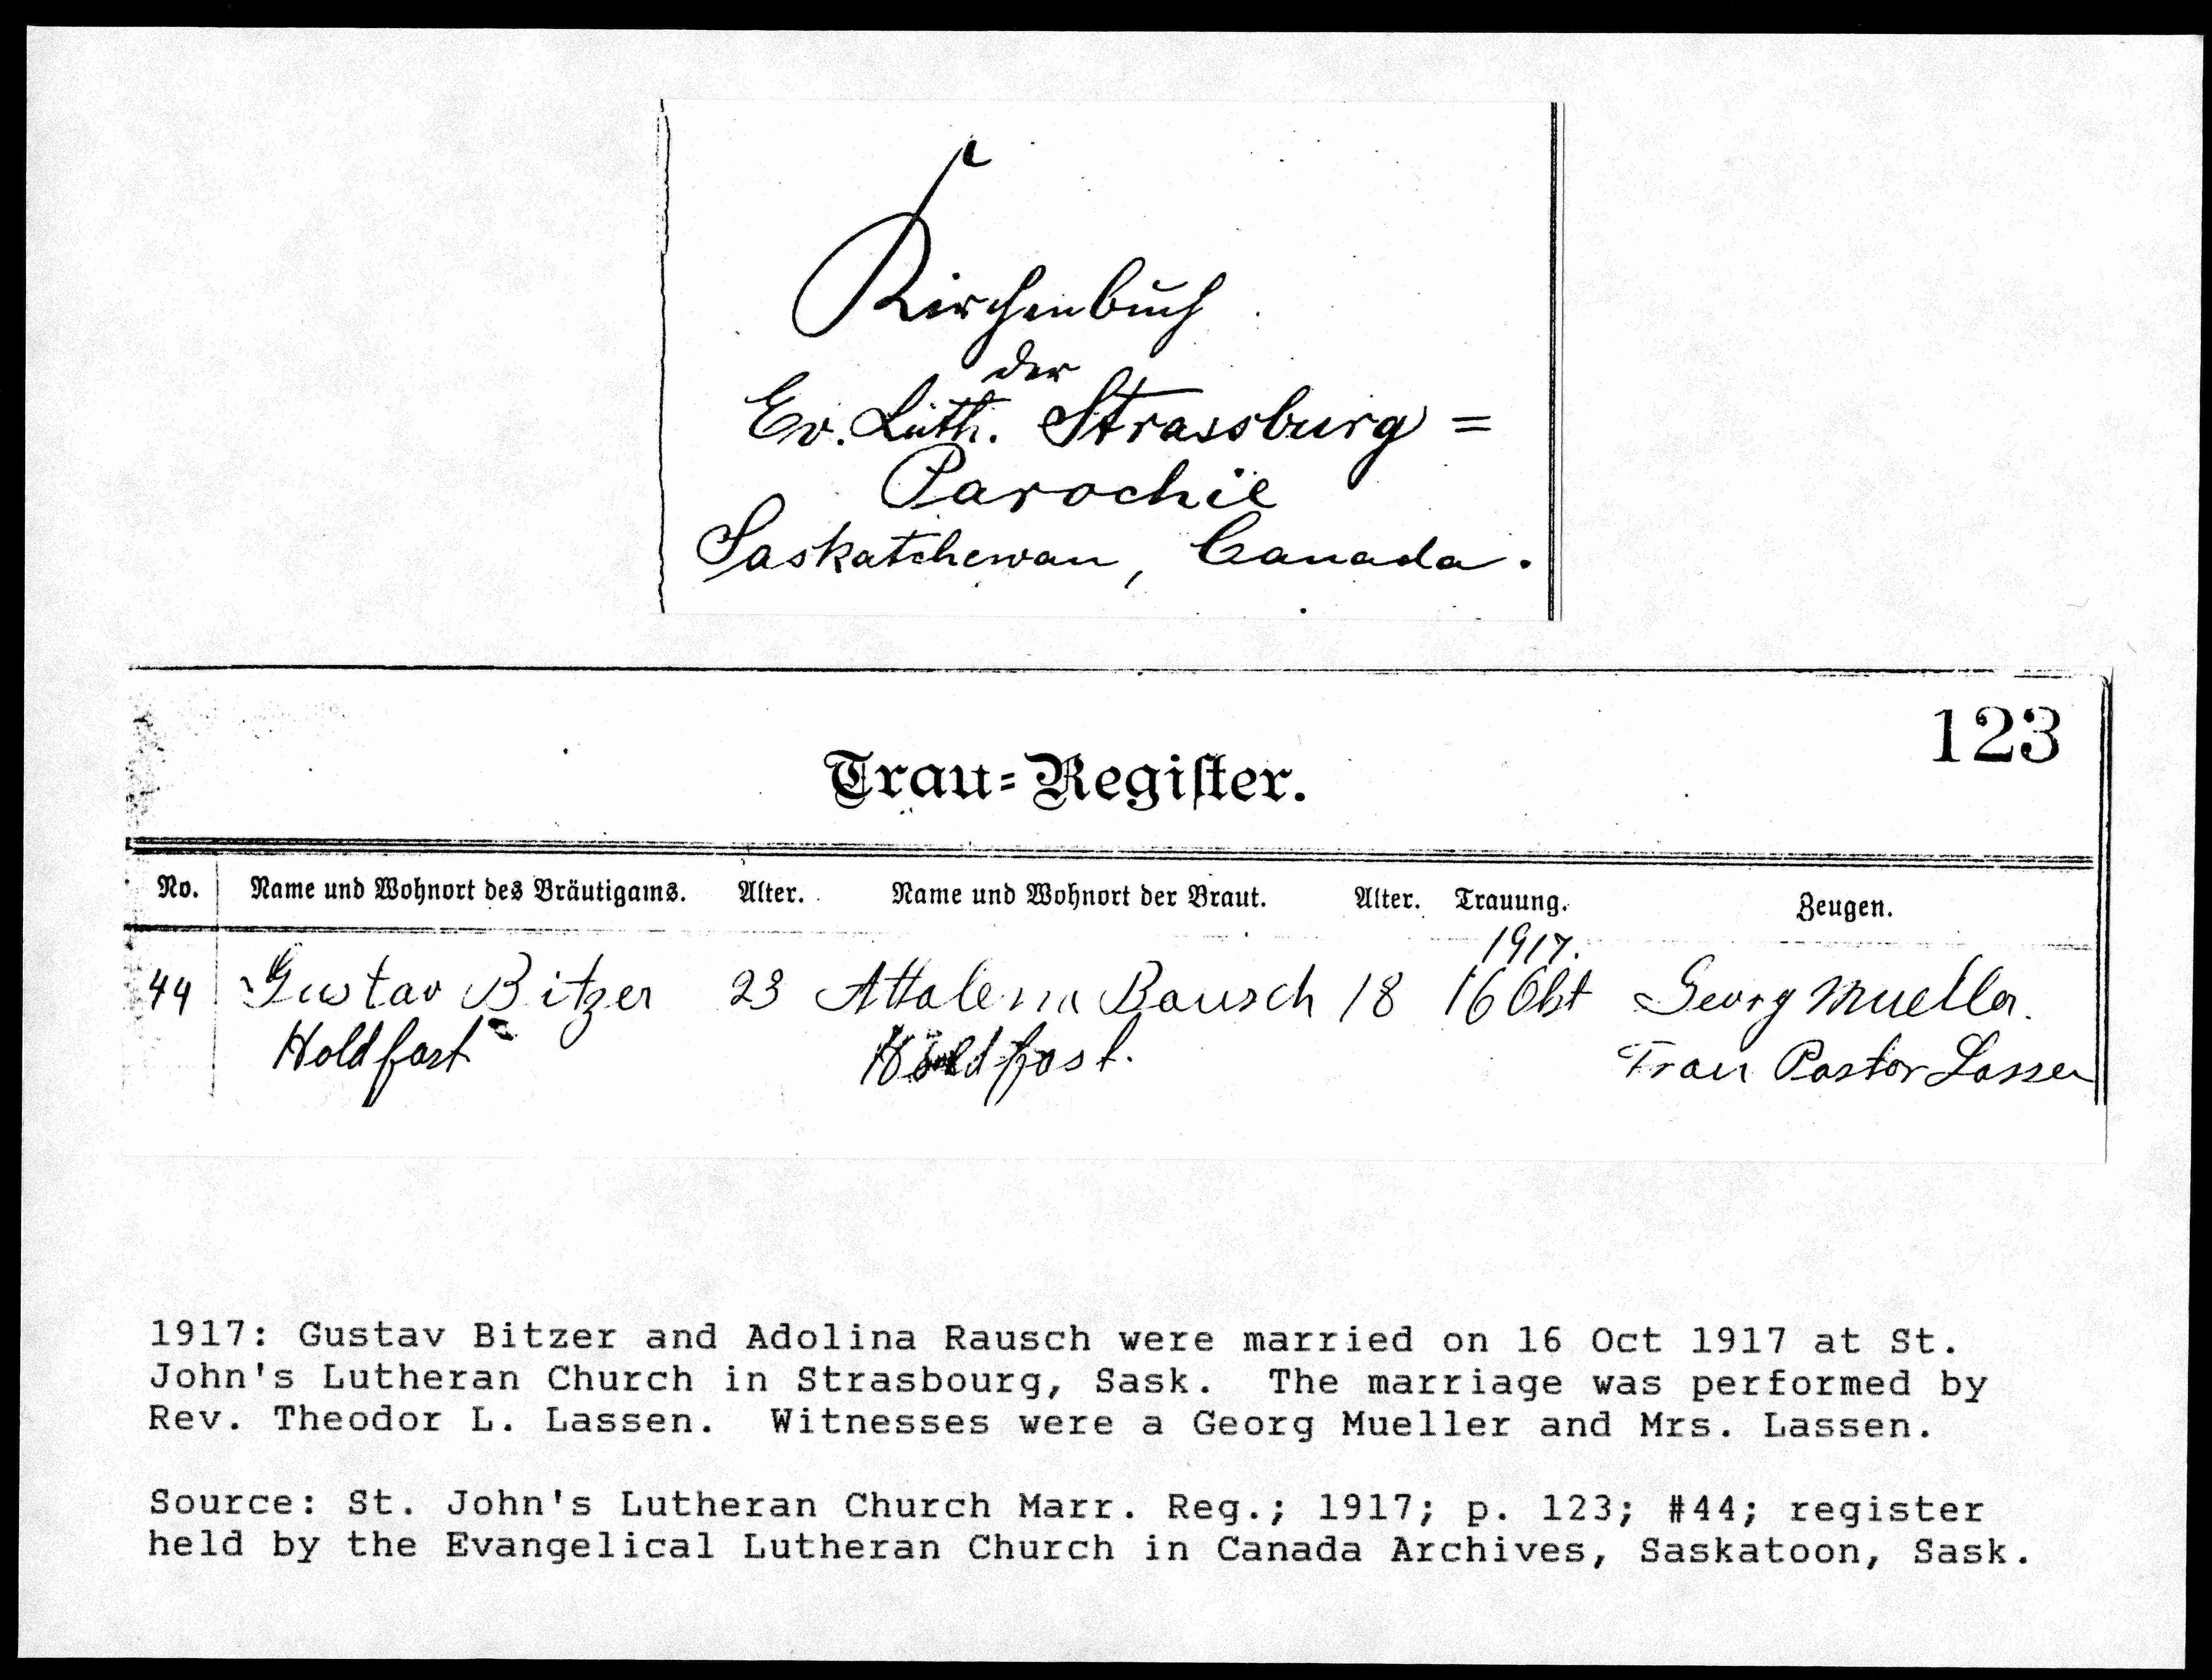 Kirchenbuch
der
Ev. Luth. Strassburg =
Parochie
Saskatchewan, Canada.
123
Trau=Register.
No. Name und Wohnort des Bräutigams. Alter. Name und Wohnort der Braut. Alter. Trauung. Zeugen.
1917.
44 Gustav Bitzer 23 Rausch 18 16 Okt Georg Mueller.
Holdfast Holdfast. Frau Pastor Lassen
1917: Gustav Bitzer and Adolina Rausch were married on 16 Oct 1917 at St.
John's Lutheran Church in Strasbourg, Sask. The marriage was performed by
Rev. Theodor L. Lassen. Witnesses were a Georg Mueller and Mrs. Lassen.
Source: St. John's Lutheran Church Marr. Reg.; 1917; p. 123; #44; register
held by the Evangelical Lutheran Church in Canada Archives, Saskatoon, Sask.